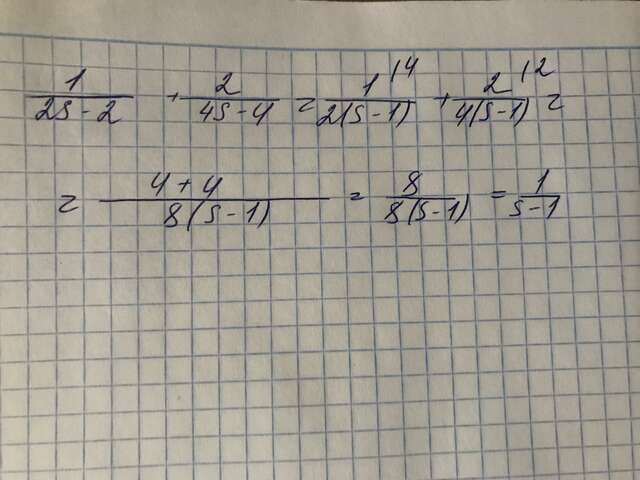 1/(2s-2) + 2/(4s-4) = 1|4/(2(s-1)) + 2|2/(4(s-1)) =
= (4+4)/(8(s-1)) = 8/(8(s-1)) = 1/(s-1)